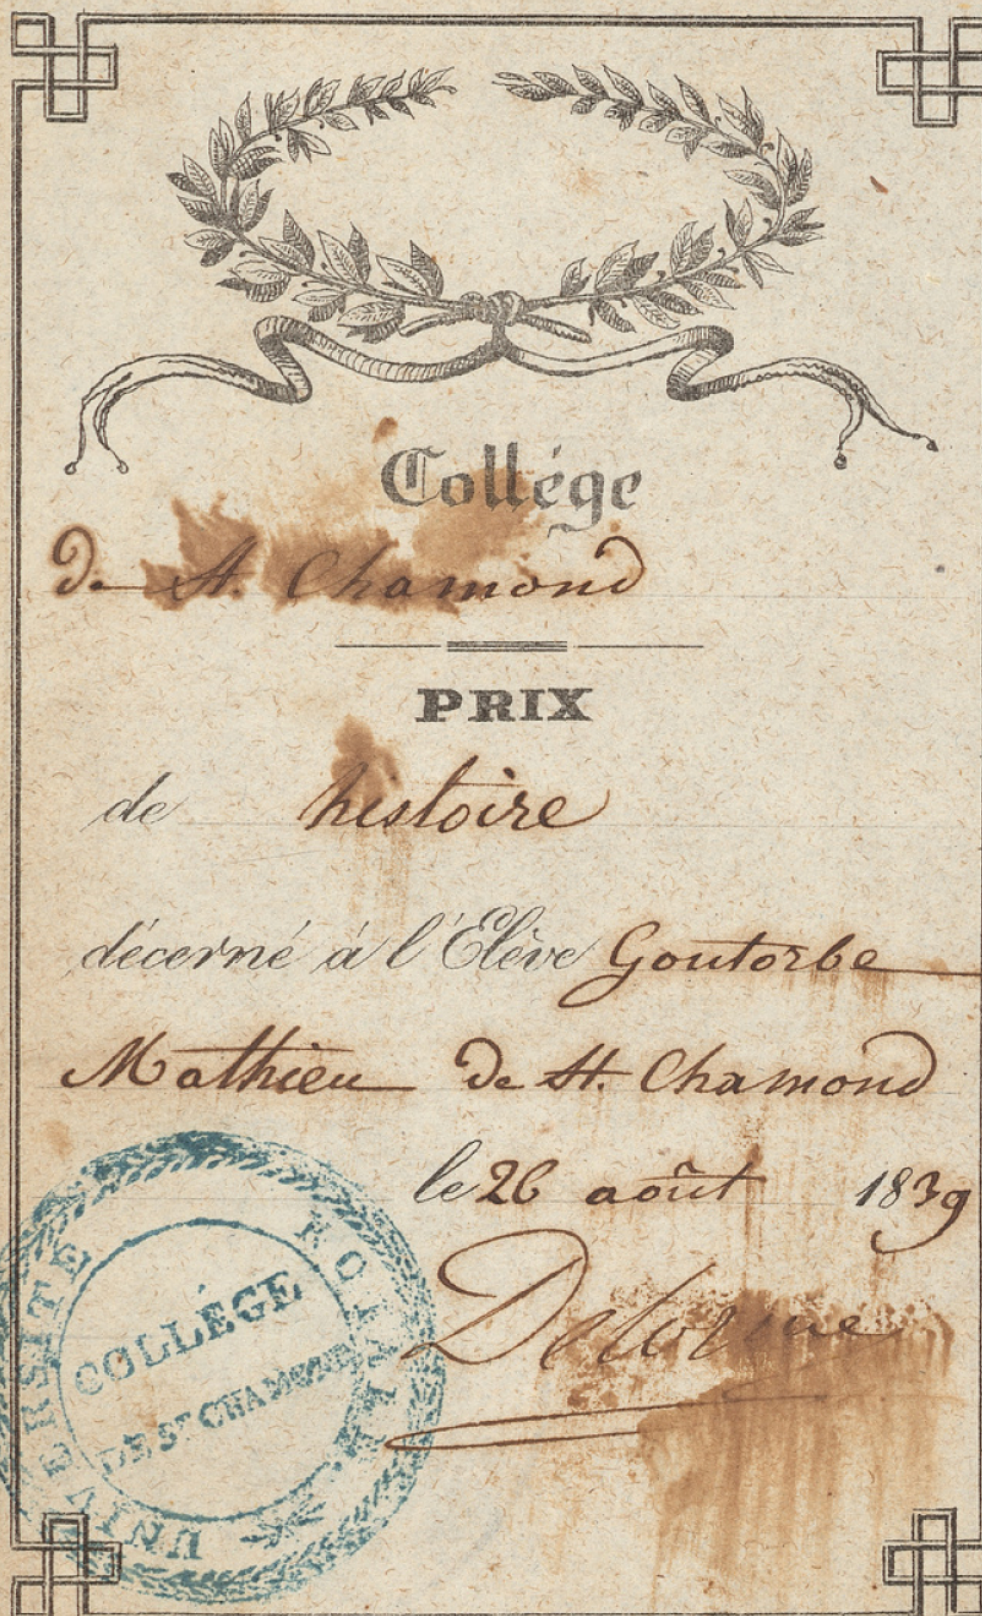 Collége
de St. Chamond
PRIX
de histoire
décerné à l'Élève Goutorbe
Mathieu de St. Chamond
le 26 août 1839
Delorme
UNIVERSITÉ ROYALE
COLLÉGE
DE ST CHAMOND